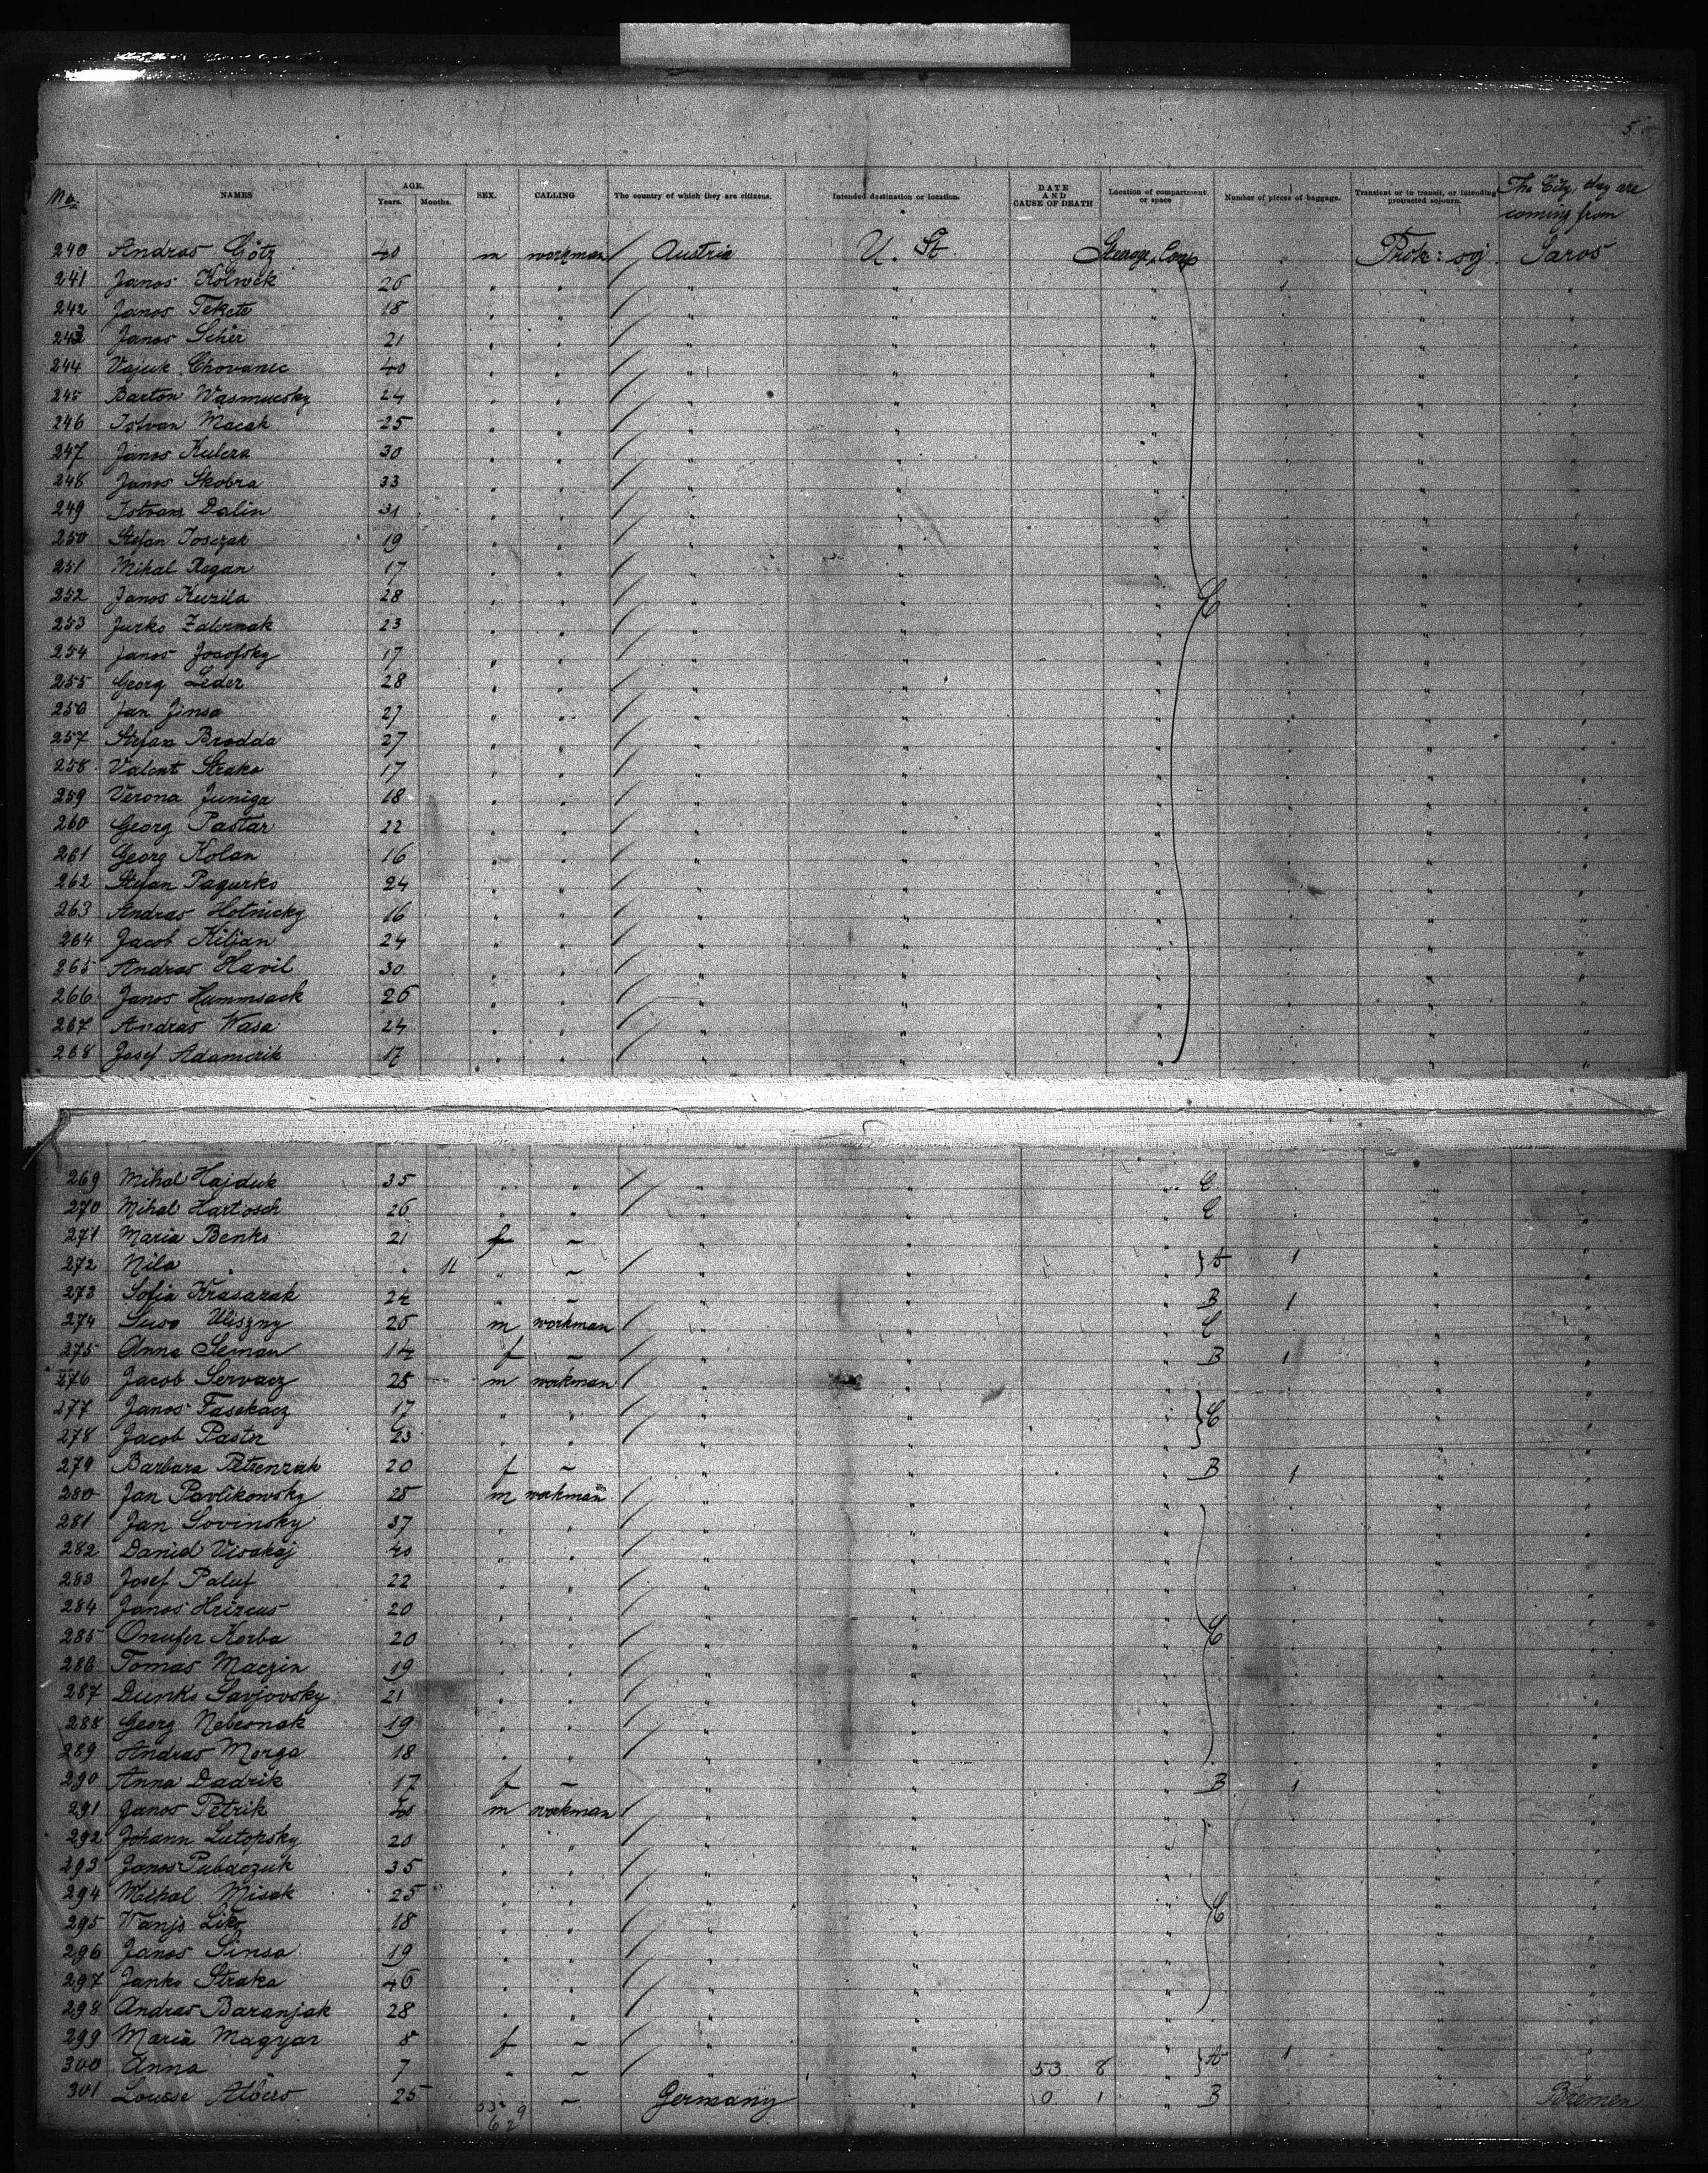 5.
No. NAMES AGE. Years. Months. SEX. CALLING The country of which they are citizens. Intended destination or location. DATE AND CAUSE OF DEATH Location of compartment or space Number of pieces of baggage. Transient or in transit, or intending protracted sojourn. The City, they are coming from
240 Andras Götz 40 m workman / Austria U. St. Steerage Comp Prok: soj. Saros
241 Janos 26 " " / " " " " "
242 Janos Fekete 18 " " / " " " " "
243 Janos Scher 21 " " / " " " " "
244 Chovanec 40 " " / " " " " "
245 Barton Wasmucsky 24 " " / " " " " "
246 Istvan Macak 25 " " / " " " " "
247 Janos Kubera 30 " " / " " " " "
248 Janos Skobra 33 " " / " " " " "
249 Istvan Dalin 31 " " / " " " " "
250 Stefan Josczak 19 " " / " " " " "
251 Mihal Regan 17 " " / " " " " "
252 Janos Kuzila 28 " " / " " " C " "
253 Jurko Zabernak 23 " " / " " " " "
254 Janos Josofsky 17 " " / " " " " "
255 Georg Leder 28 " " / " " " " "
256 Jan Jinsa 27 " " / " " " " "
257 Stefan Brodda 27 " " / " " " " "
258 Valent Straka 17 " " / " " " " "
259 Verona Juniga 18 " " / " " " " "
260 Georg Pastar 22 " " / " " " " "
261 Georg Kolan 16 " " / " " " " "
262 Stefan Pagurko 24 " " / " " " " "
263 Andras Hotnicky 16 " " / " " " " "
264 Jacob Kiljan 24 " " / " " " " "
265 Andras Havil 30 " " / " " " " "
266 Janos Hummsack 26 " " / " " " " "
267 Andras Wasa 24 " " / " " " " "
268 Josef Adamcrik 17 " " / " " " " "
269 Mihal Hajduk 35 " " / " " " C " "
270 Mihal Hartosch 26 " " / " " " C " "
271 Maria Benko 21 f ~ " " " " "
272 Nila " 11 " ~ / " " " A 1 " "
273 Sofia Krasarak 24 " ~ " " " B 1 " "
274 Uliszny 25 m workman / " " " C " "
275 Anna Seman 14 f ~ / " " " B 1 " "
276 Jacob Servacz 25 m workman / " " " " "
277 Janos Fasekacz 17 " " / " " " C " "
278 Jacob Paster 23 " " / " " " " "
279 Barbara Petrenzak 20 f ~ " " " B 1 " "
280 Jan Pavlikowsky 25 m workman / " " " " "
281 Jan Sovinsky 37 " " / " " " " "
282 Daniel Visokaj 40 " " / " " " " "
283 Josef Paluf 22 " " / " " " " "
284 Janos Hrizcus 20 " " / " " " " "
285 Onufer Korba 20 " " / " " " C " "
286 Tomas Maczin 19 " " / " " " " "
287 Dunko Savjovsky 21 " " / " " " " "
288 Georg Nebesnak 19 " " / " " " " "
289 Andras Morga 18 " " / " " " " "
290 Anna Dadrik 17 f ~ " " " B 1 " "
291 Janos Petrik 40 m workman / " " " " "
292 Johann Lutopsky 20 " " / " " " " "
293 Janos Pubaczuk 35 " " / " " " " "
294 Mihal Misak 25 " " / " " " " "
295 Wanjo Liko 18 " " / " " " C " "
296 Janos Sinsa 19 " " / " " " " "
297 Janko Straka 46 " " / " " " " "
298 Andras Baranjak 28 " " / " " " " "
299 Maria Magyar 8 f ~ / " " " " "
300 Anna " 7 " ~ / " " 53 8 " A 1 " "
301 Louise Albers 25 ~ Germany " 0 1 " B Bremen
53 9
62